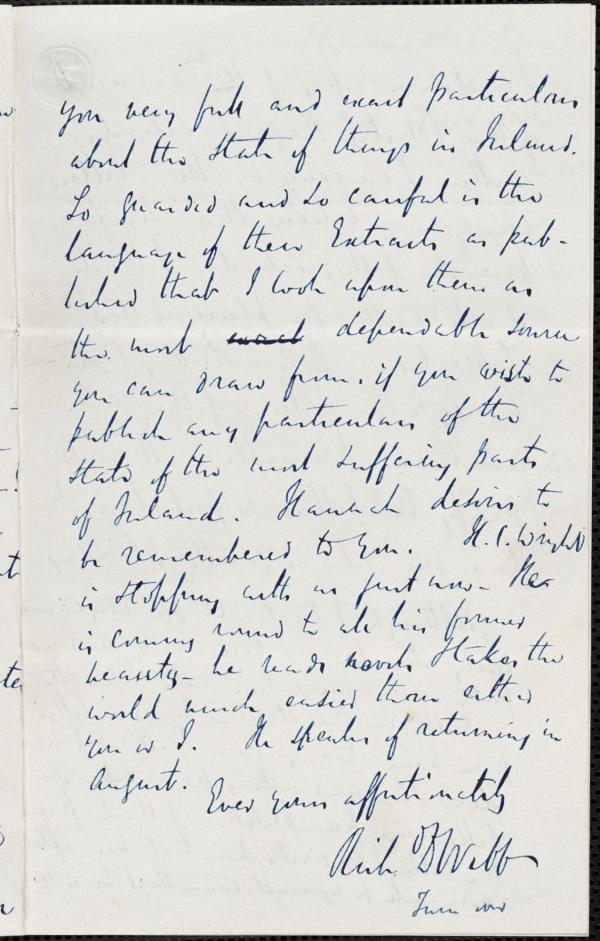 you very full and exact particulars
about the State of things in Ireland.
So guarded and so careful is the
language of these Extracts as pub-
lished that I look upon them as
the most exact dependable source
you can draw from, if you wish to
publish any particulars of the
state of the most suffering parts
of Ireland. Hannah desires to
be remembered to you. H. C. Wright
is stopping with us just now - He
is coming round to all his former
heartily - he reads novels & takes the
world much easier than either
you or I. He speaks of returning in
August.
Ever yours affectionately
Rich. D Webb
Turn over